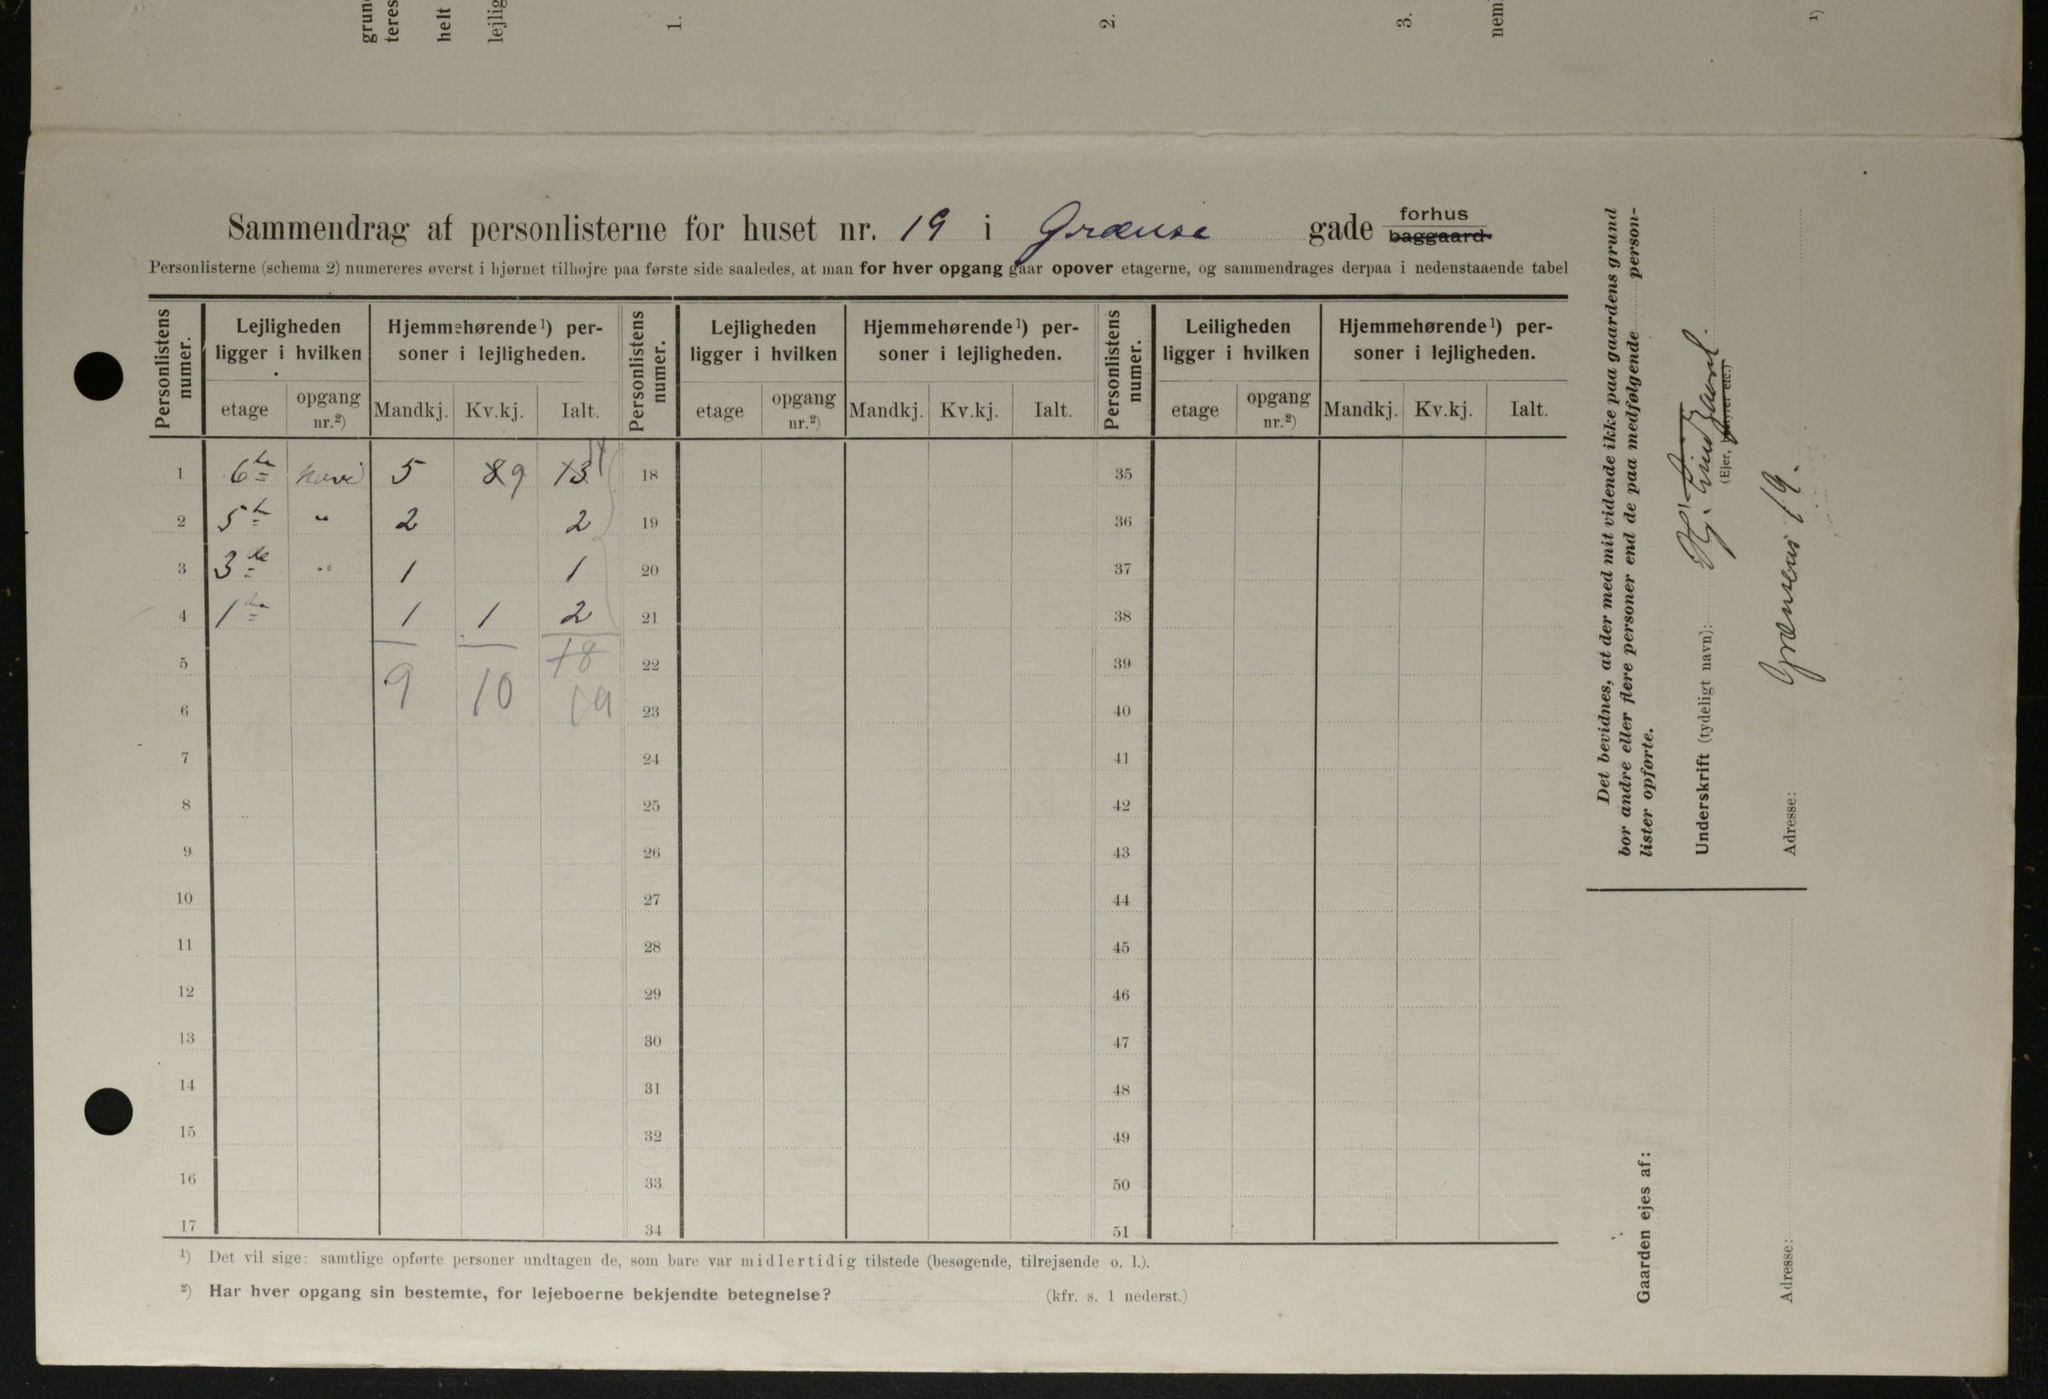 grun
teres
helt
lejlig
1.
2.
3.
nem
¹)
Sammendrag af personlisterne for huset nr. 19 i Grænse gade forhus baggaard
Personlisterne (schema 2) numereres øverst i hjørnet tilhøjre paa første side saaledes, at man for hver opgang gaar opover etagerne, og sammendrages derpaa i nedenstaaende tabel
Personlistens numer. Lejligheden ligger i hvilken Hjemmehørende¹) personer i lejligheden. Personlistens numer. Lejligheden ligger i hvilken Hjemmehørende¹) personer i lejligheden. Personlistens numer. Leiligheden ligger i hvilken Hjemmehørende¹) personer i lejligheden.
etage opgang nr.²) Mandkj. Kv.kj. Ialt. etage opgang nr.²) Mandkj. Kv.kj. Ialt. etage opgang nr.²) Mandkj. Kv.kj. Ialt.
1 6te 5 8 9 13 14 18 35
2 5te " 2 2 19 36
3 3de " 1 1 20 37
4 1te 1 1 2 21 38
5 18 22 39
6 9 10 19 23 40
7 24 41
8 25 42
9 26 43
10 27 44
11 28 45
12 29 46
13 30 47
14 31 48
15 32 49
16 33 50
17 34 51
¹) Det vil sige: samtlige opførte personer undtagen de, som bare var midlertidig tilstede (besøgende, tilrejsende o. l.).
²) Har hver opgang sin bestemte, for lejeboerne bekjendte betegnelse? (kfr. s. 1 nederst.)
Det bevidnes, at der med mit vidende ikke paa gaardens grund
bor andre eller flere personer end de paa medfølgende person-
lister opførte.
Underskrift (tydeligt navn): Hj. Lindgaard.
(Ejer, bestyrer etc.)
Adresse: Grænsen 19.
Gaarden ejes af:
Adresse: